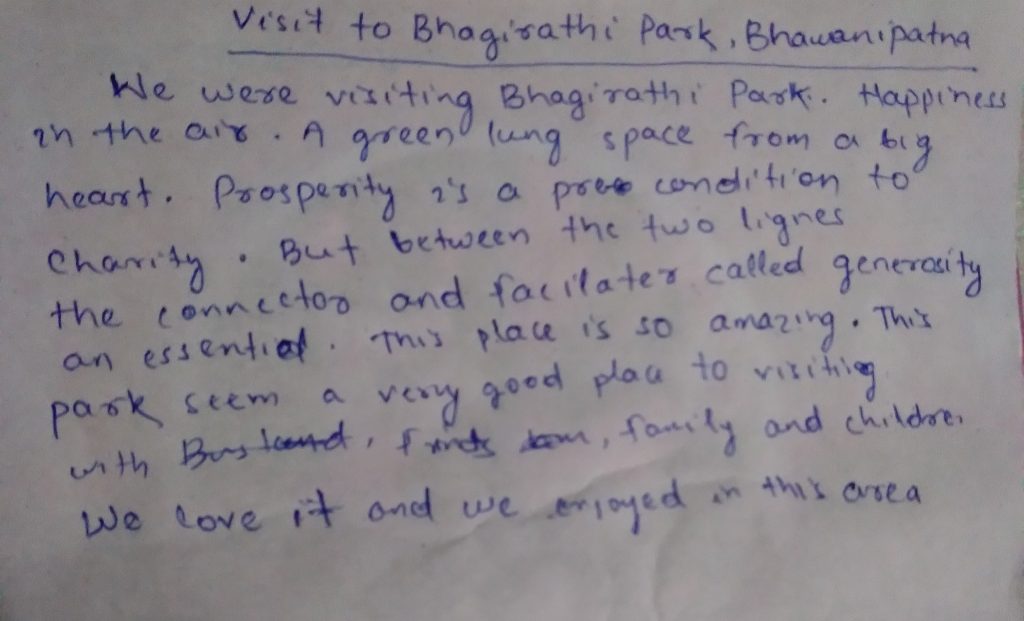 Visit to Bhagirathi Park, Bhawanipatna
We were visiting Bhagirathi Park. Happiness
in the air. A green lung space from a big
heart. Prosperity is a pree condition to
Charity. But between the two lignes
the connector and facilater called generosity
an essential. This place is so amazing. This
park seem a very good place to visiting
with family and children
We love it and we enjoyed in this area